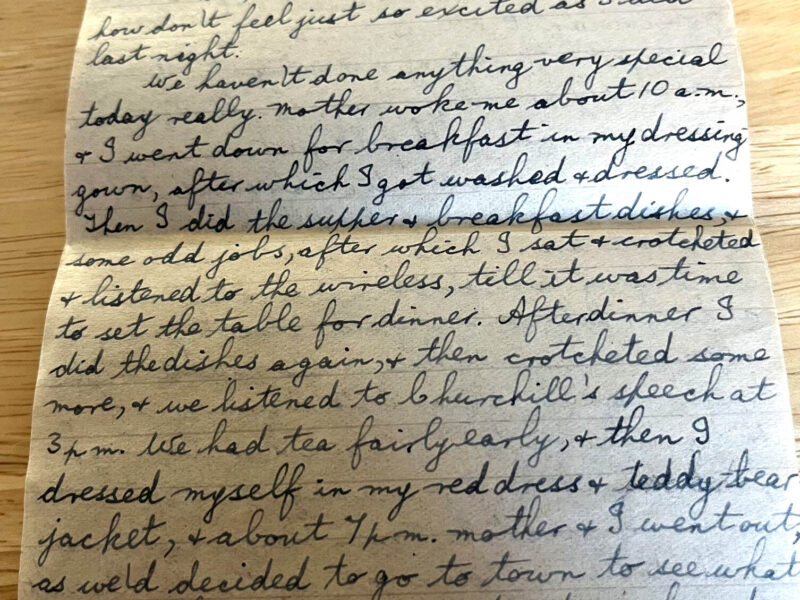 how don't feel just so excited as I did
last night.
We haven't done anything very special
today really. Mother woke me about 10 a.m.,
& I went down for breakfast in my dressing
gown, after which I got washed & dressed.
Then I did the supper & breakfast dishes, &
some odd jobs, after which I sat & crotcheted
& listened to the wireless, till it was time
to set the table for dinner. After dinner I
did the dishes again, & then crotcheted some
more, & we listened to Churchill's speech at
3 p.m. We had tea fairly early, & then I
dressed myself in my red dress & teddy-bear
jacket, & about 7 p.m. mother & I went out,
as we'd decided to go to town to see what